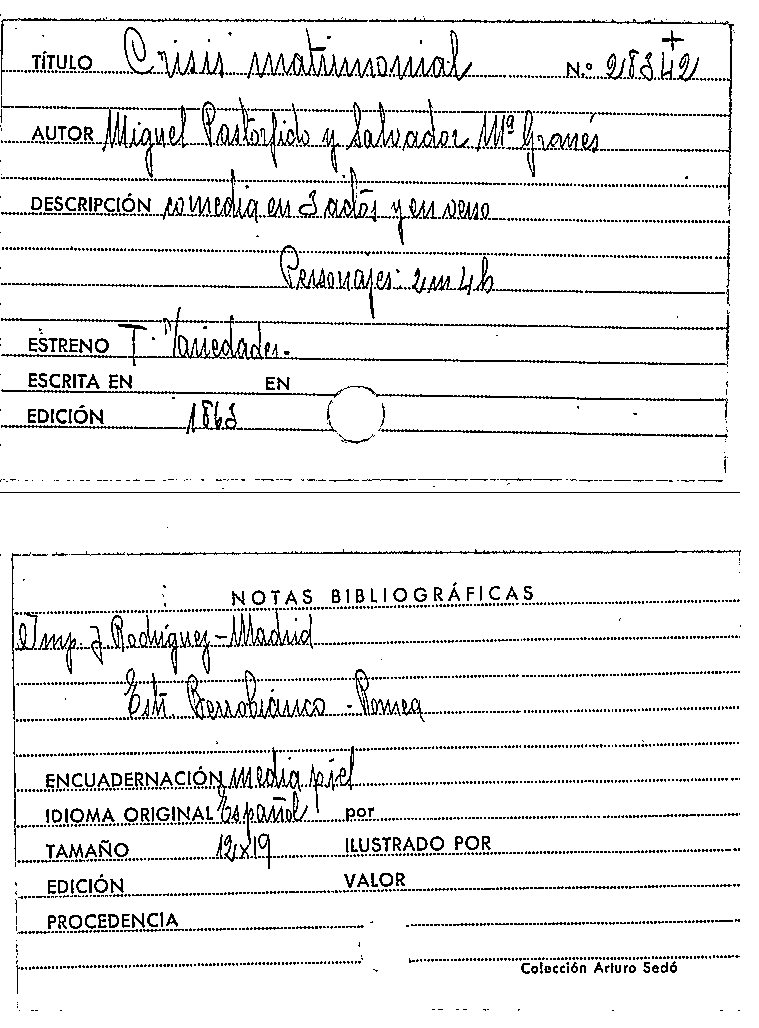 TÍTULO Crisis matrimonial N.º 28342
AUTOR Miguel Pastorfido y Salvador Mª Granés
DESCRIPCIÓN comedia en 3 actos y en verso
Personajes: 2 m 4 h
ESTRENO T. Variedades.
ESCRITA EN EN
EDICIÓN 1863
NOTAS BIBLIOGRÁFICAS
Imp. J Rodríguez - Madrid
ENCUADERNACIÓN media piel
IDIOMA ORIGINAL Español por
TAMAÑO 12x19 ILUSTRADO POR
EDICIÓN VALOR
PROCEDENCIA
Colección Arturo Sedó